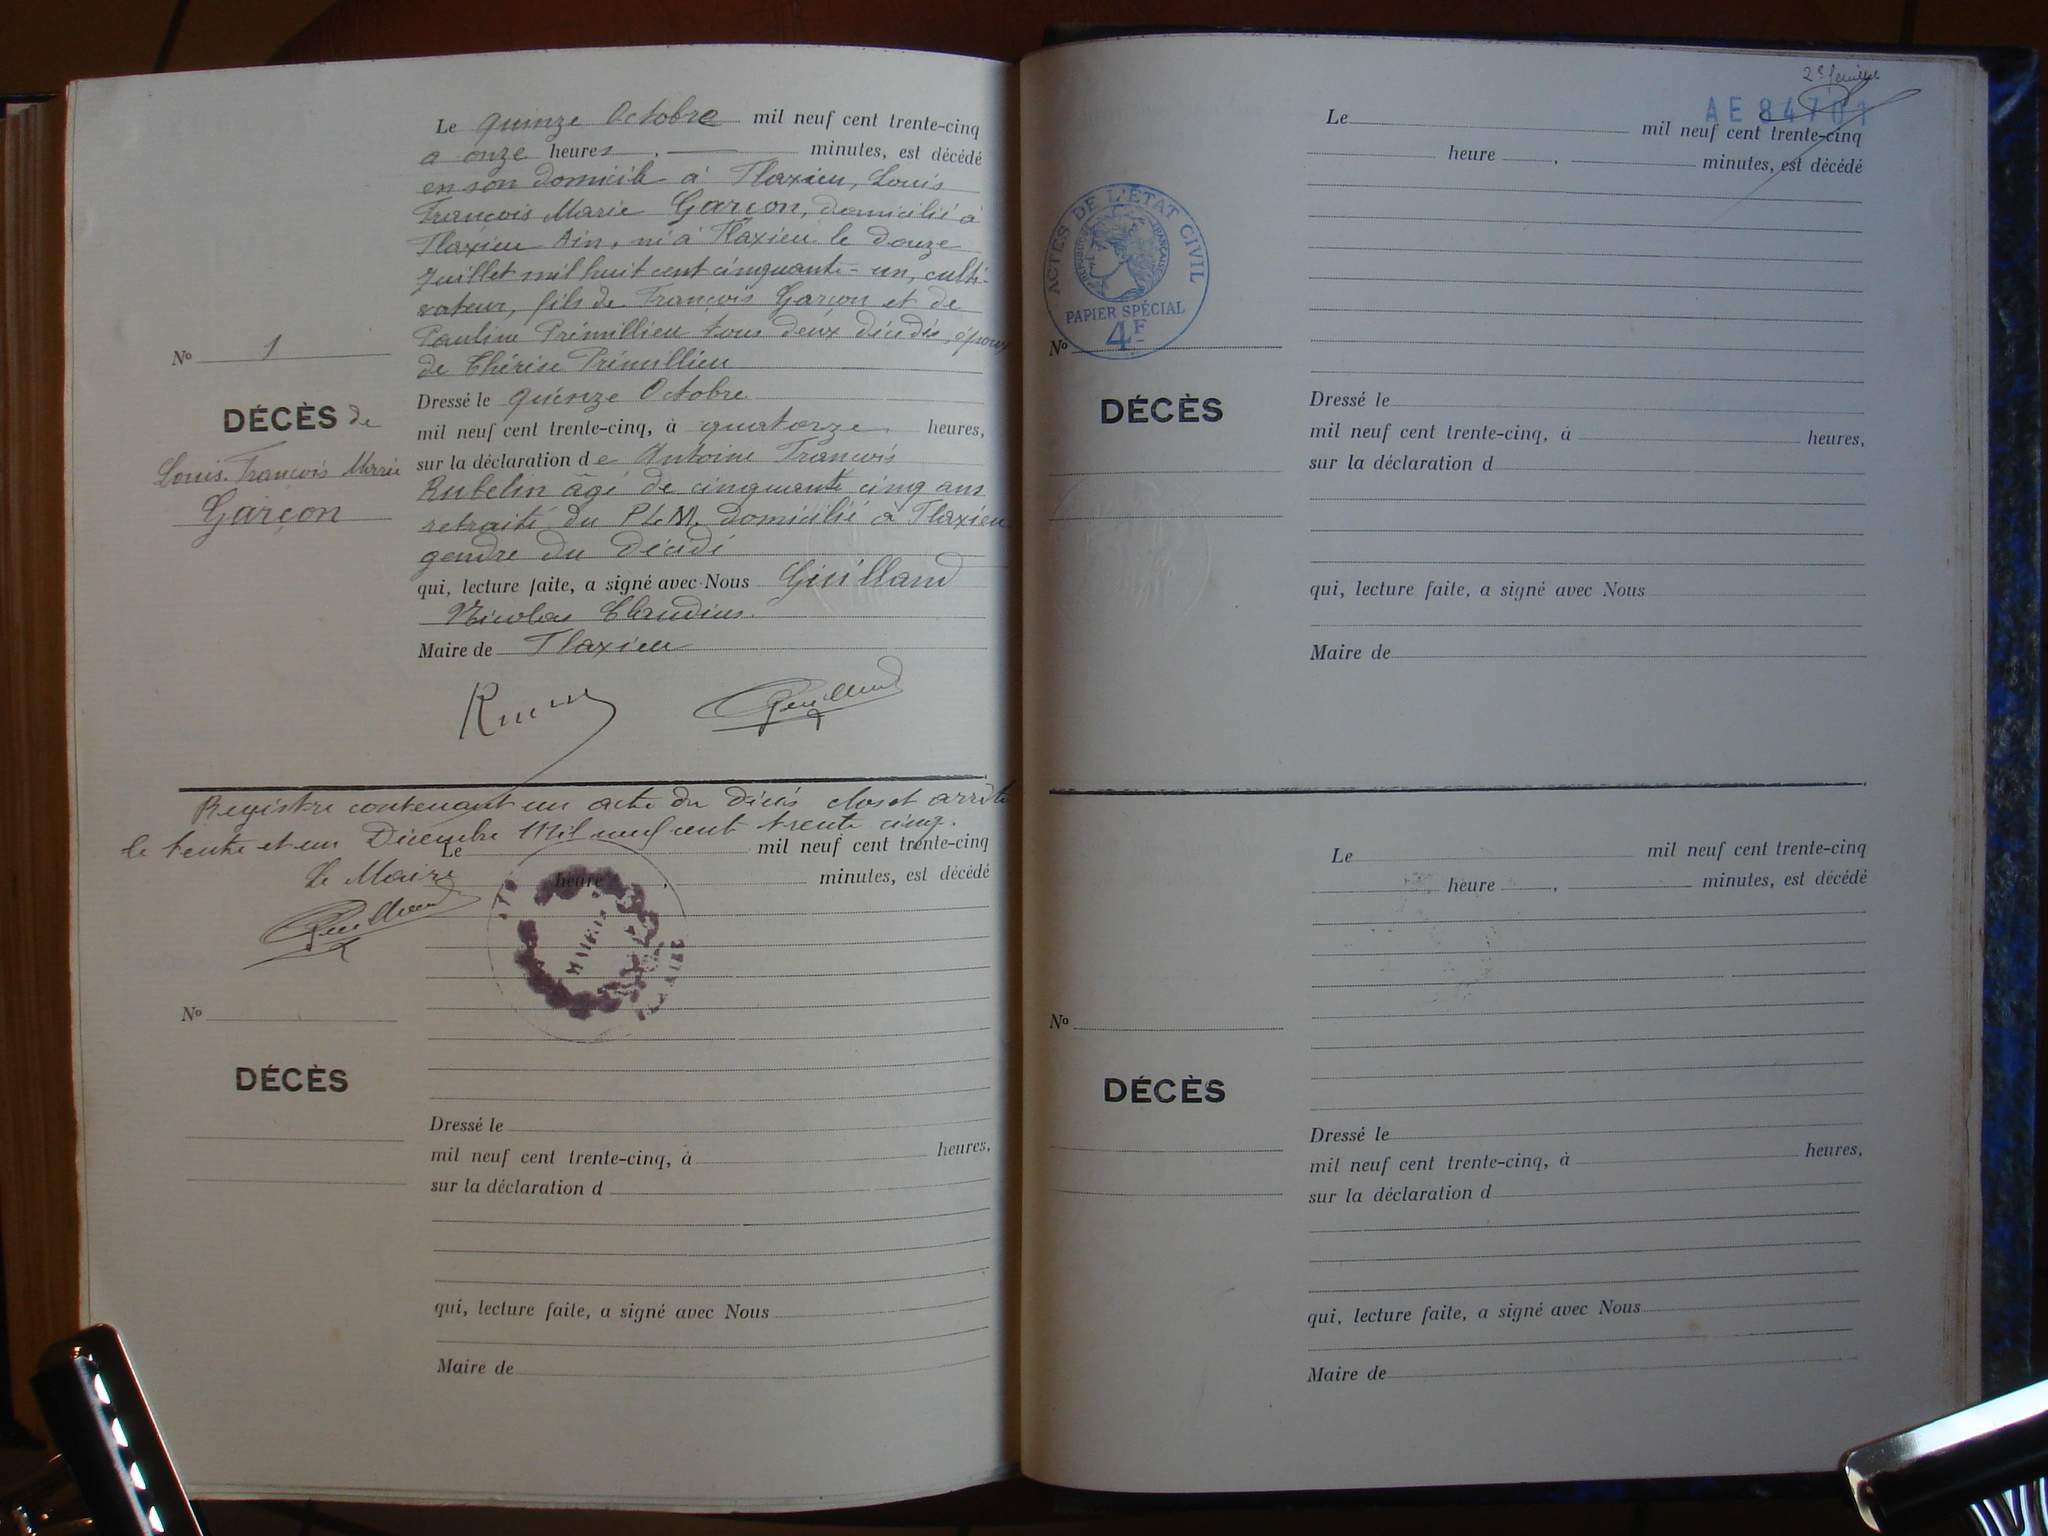 Le quinze Octobre mil neuf cent trente-cinq
a onze heures, — minutes, est décédé
en son domicile à Flaxieu, Louis
François Marie Garçon, domicilié à
Flaxieu Ain, né à Flaxieu le douze
Juillet mil huit cent cinquante-un, culti-
vateur, fils de François Garçon et de
Pauline Prémillieu tous deux décédés, époux
de Thérèse Prémillieu
Nº 1
DÉCÈS de
Louis François Marie
Garçon
Dressé le quinze Octobre
mil neuf cent trente-cinq, à quatorze heures,
sur la déclaration de Antoine François
Rubelin âgé de cinquante cinq ans
retraité du P.L.M. domicilié à Flaxieu
gendre du décédé
qui, lecture faite, a signé avec Nous Guilland
Nicolas Claudius.
Maire de Flaxieu
Guilland
Registre contenant un acte du décès clos et arrêté
le trente et un Décembre mil neuf cent trente cinq.
Le Maire
Guilland
Le mil neuf cent trente-cinq
heure , minutes, est décédé
MAIRIE
Nº
DÉCÈS
Dressé le
mil neuf cent trente-cinq, à heures,
sur la déclaration d
qui, lecture faite, a signé avec Nous
Maire de
AE 84701
Le mil neuf cent trente-cinq
heure , minutes, est décédé
ACTES DE L'ÉTAT CIVIL
RÉPUBLIQUE FRANÇAISE
PAPIER SPÉCIAL
4F
Nº
DÉCÈS
Dressé le
mil neuf cent trente-cinq, à heures,
sur la déclaration d
qui, lecture faite, a signé avec Nous
Maire de
Le mil neuf cent trente-cinq
heure , minutes, est décédé
Nº
DÉCÈS
Dressé le
mil neuf cent trente-cinq, à heures,
sur la déclaration d
qui, lecture faite, a signé avec Nous
Maire de